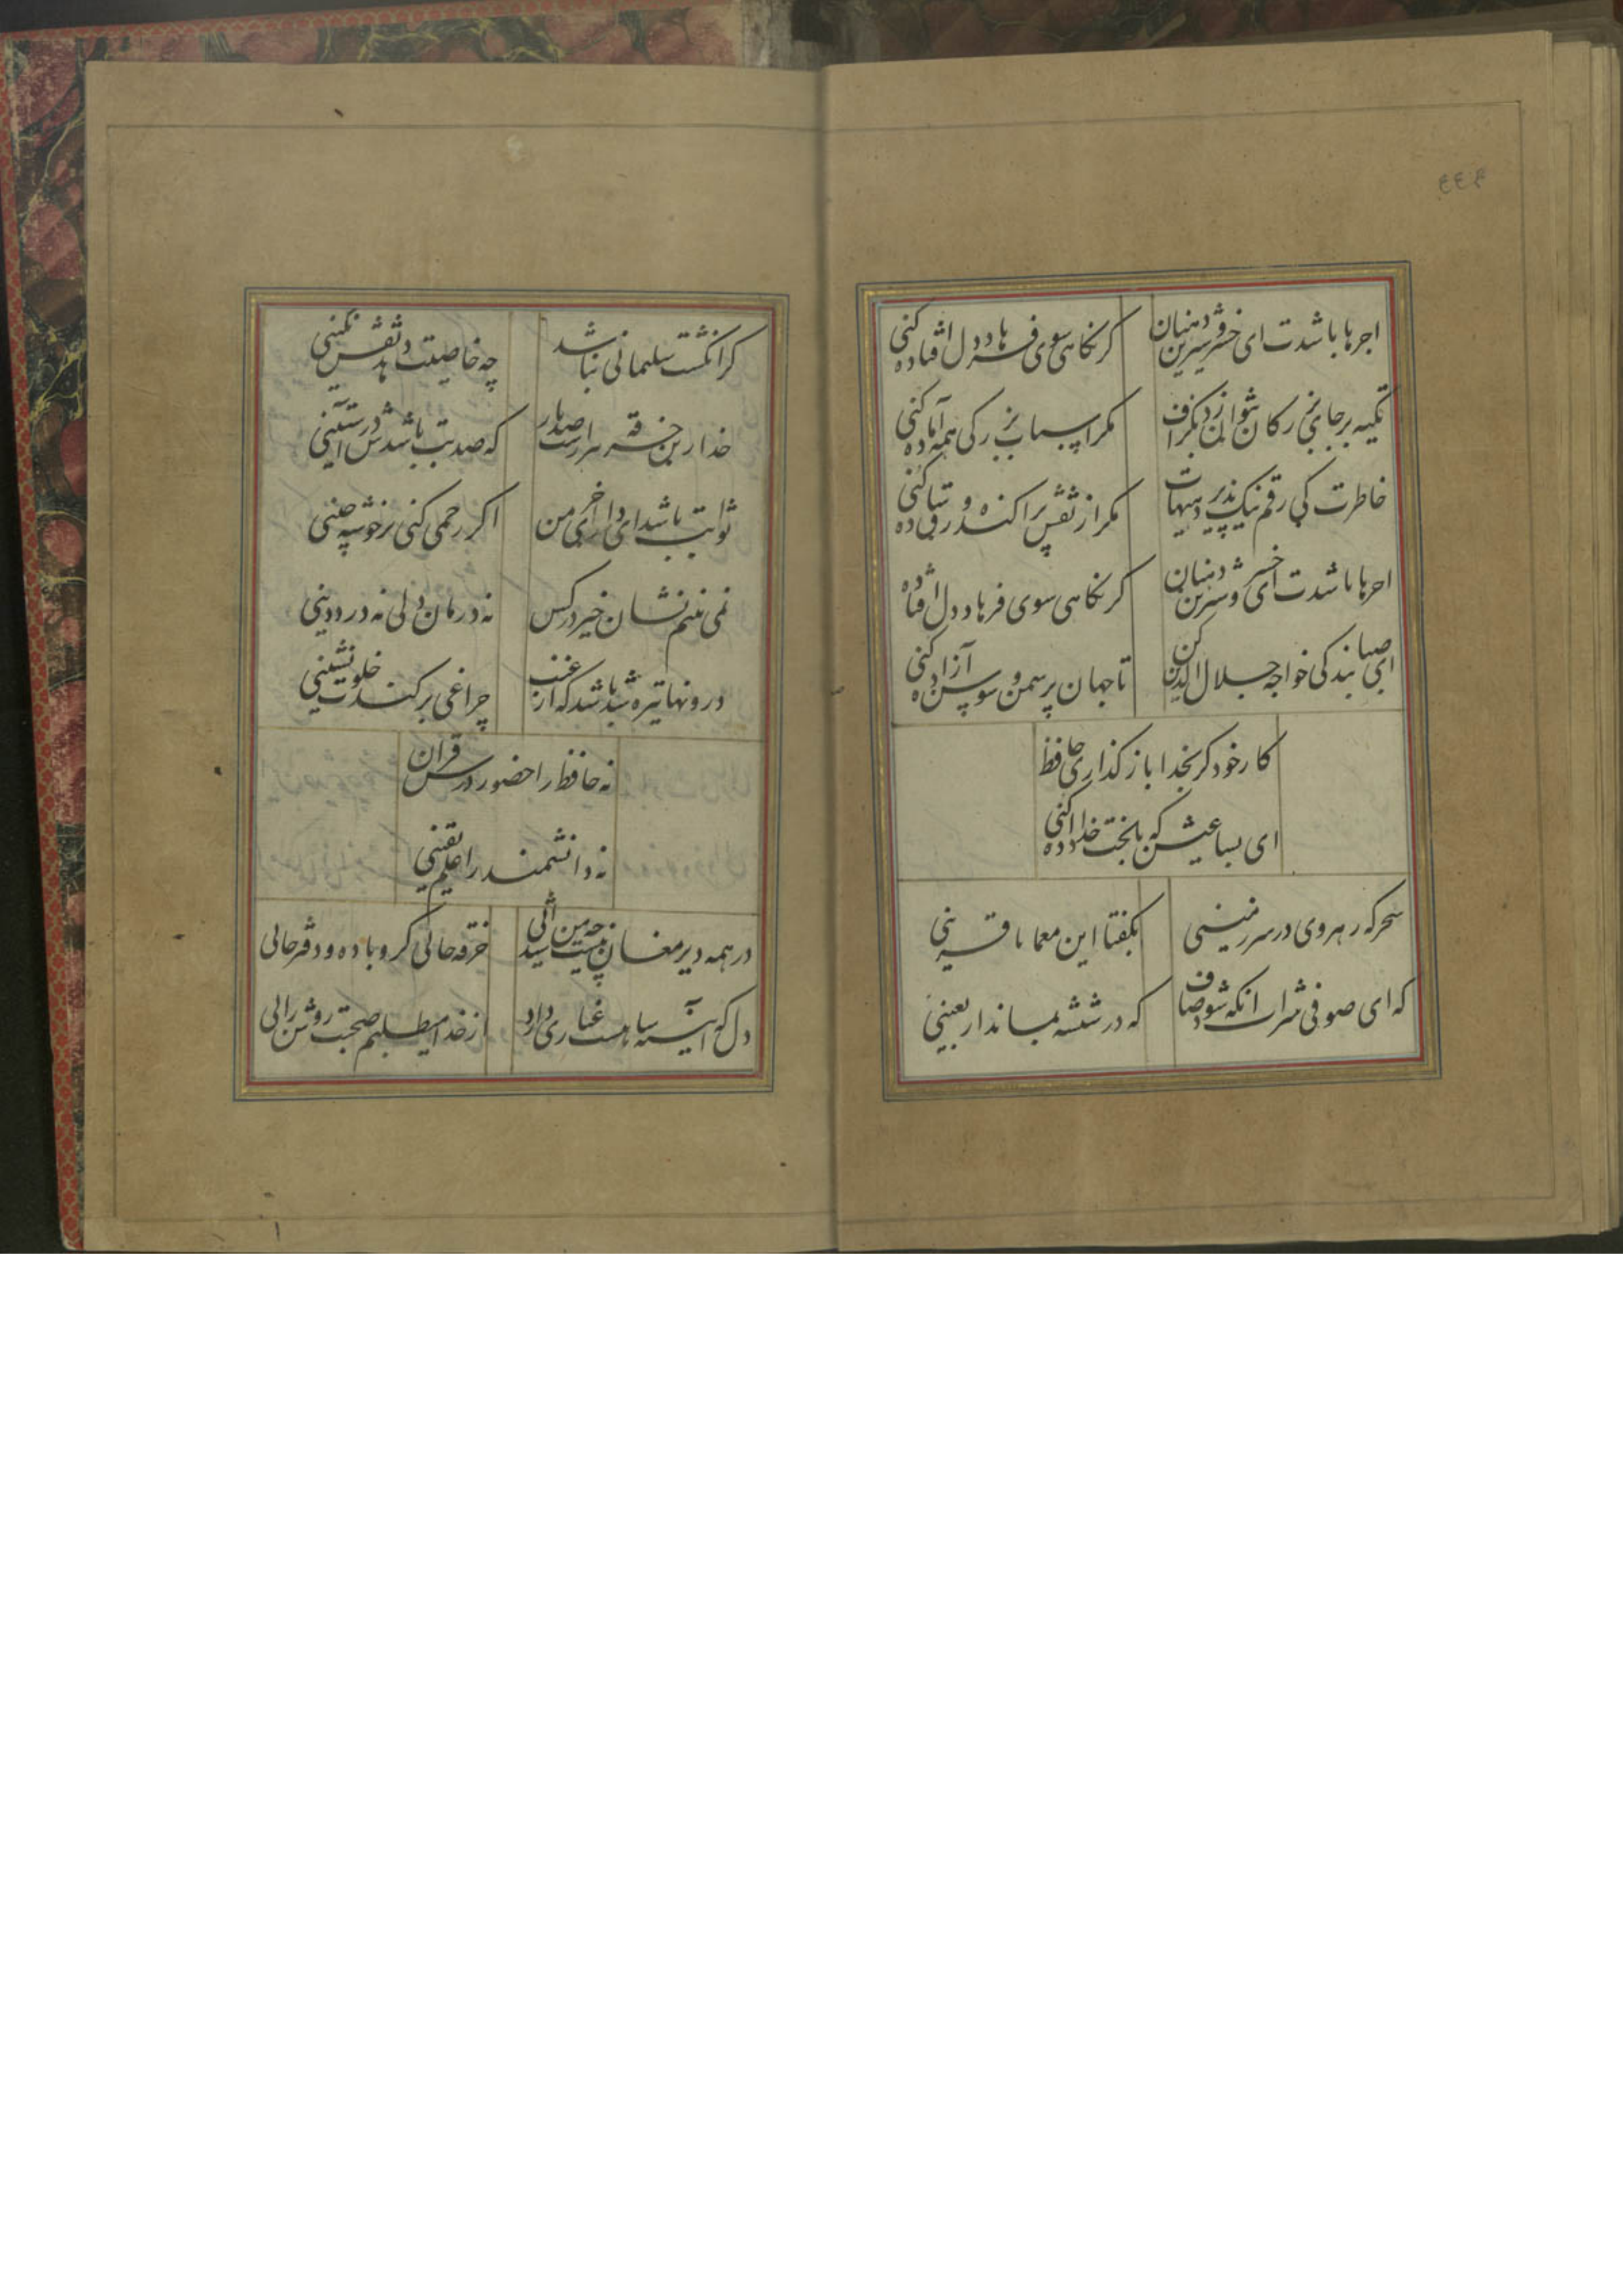 ۶۳۳
اجرها باشدت ای خسرو شیرین دهنان
گر نگاهی سوی فرهاد دل افتاده کنی
تکیه بر جای بزرگان نتوان زد بگزاف
مگر اسباب بزرگی همه آماده کنی
خاطرت کی رقم نیک پذیرد هیهات
مگر از نقش پراکنده ورق ساده کنی
اجرها باشدت ای خسرو شیرین دهنان
گر نگاهی سوی فرهاد دل افتاده
ای صبا بندگی خواجه جلال الدین کن
تا جهان پر سمن و سوسن آزاده کنی
کار خود گر بخدا باز گذاری حافظ
ای بسا عیش که با بخت خداداده کنی
سحرگه رهروی در سرزمینی
بگفتا این معما با قرینی
که ای صوفی شراب انگه شود صاف
که در شیشه بماند اربعینی
گر انگشت سلیمانی نباشد
چه خاصیت دهد نقش نگینی
خدا زین خرقه بیزارست صد بار
که صد بت باشدش در آستینی
ثوابت باشد ای دارای خرمن
اگر رحمی کنی بر خوشه چینی
نمی بینم نشان خیر در کس
نه درمان دلی نه درد دینی
درونها تیره شد باشد که از غیب
چراغی بر کند خلوت نشینی
نه حافظ را حضور درس قران
نه دانشمند را علم یقینی
در همه دیر مغان نیست چو من شیدائی
خرقه جائی گرو باده و دفتر جائی
دل که آیینه شاهیست غباری دارد
از خدا میطلبم صحبت روشن رائی